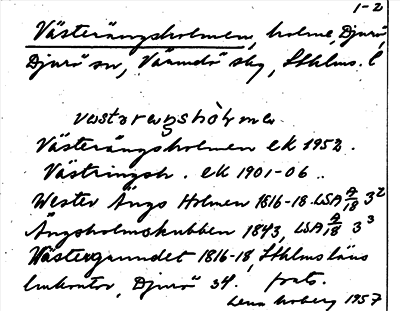 1-2
Västerängsholmen, holme, Djurö,
Djurö sn, Värmdö skg, Sthlms. l
Västerängsholmen ek 1952.
Västringsh. ek 1901-06..
Wester Ängs Holmen 1816-18 LSA A/18 3²
Ängsholmskubben 1843, LSA A/18 3³
Västergrundet 1816-18, Sthlms läns
lmkontor, Djurö 34. forts.
Lena Moberg 1957